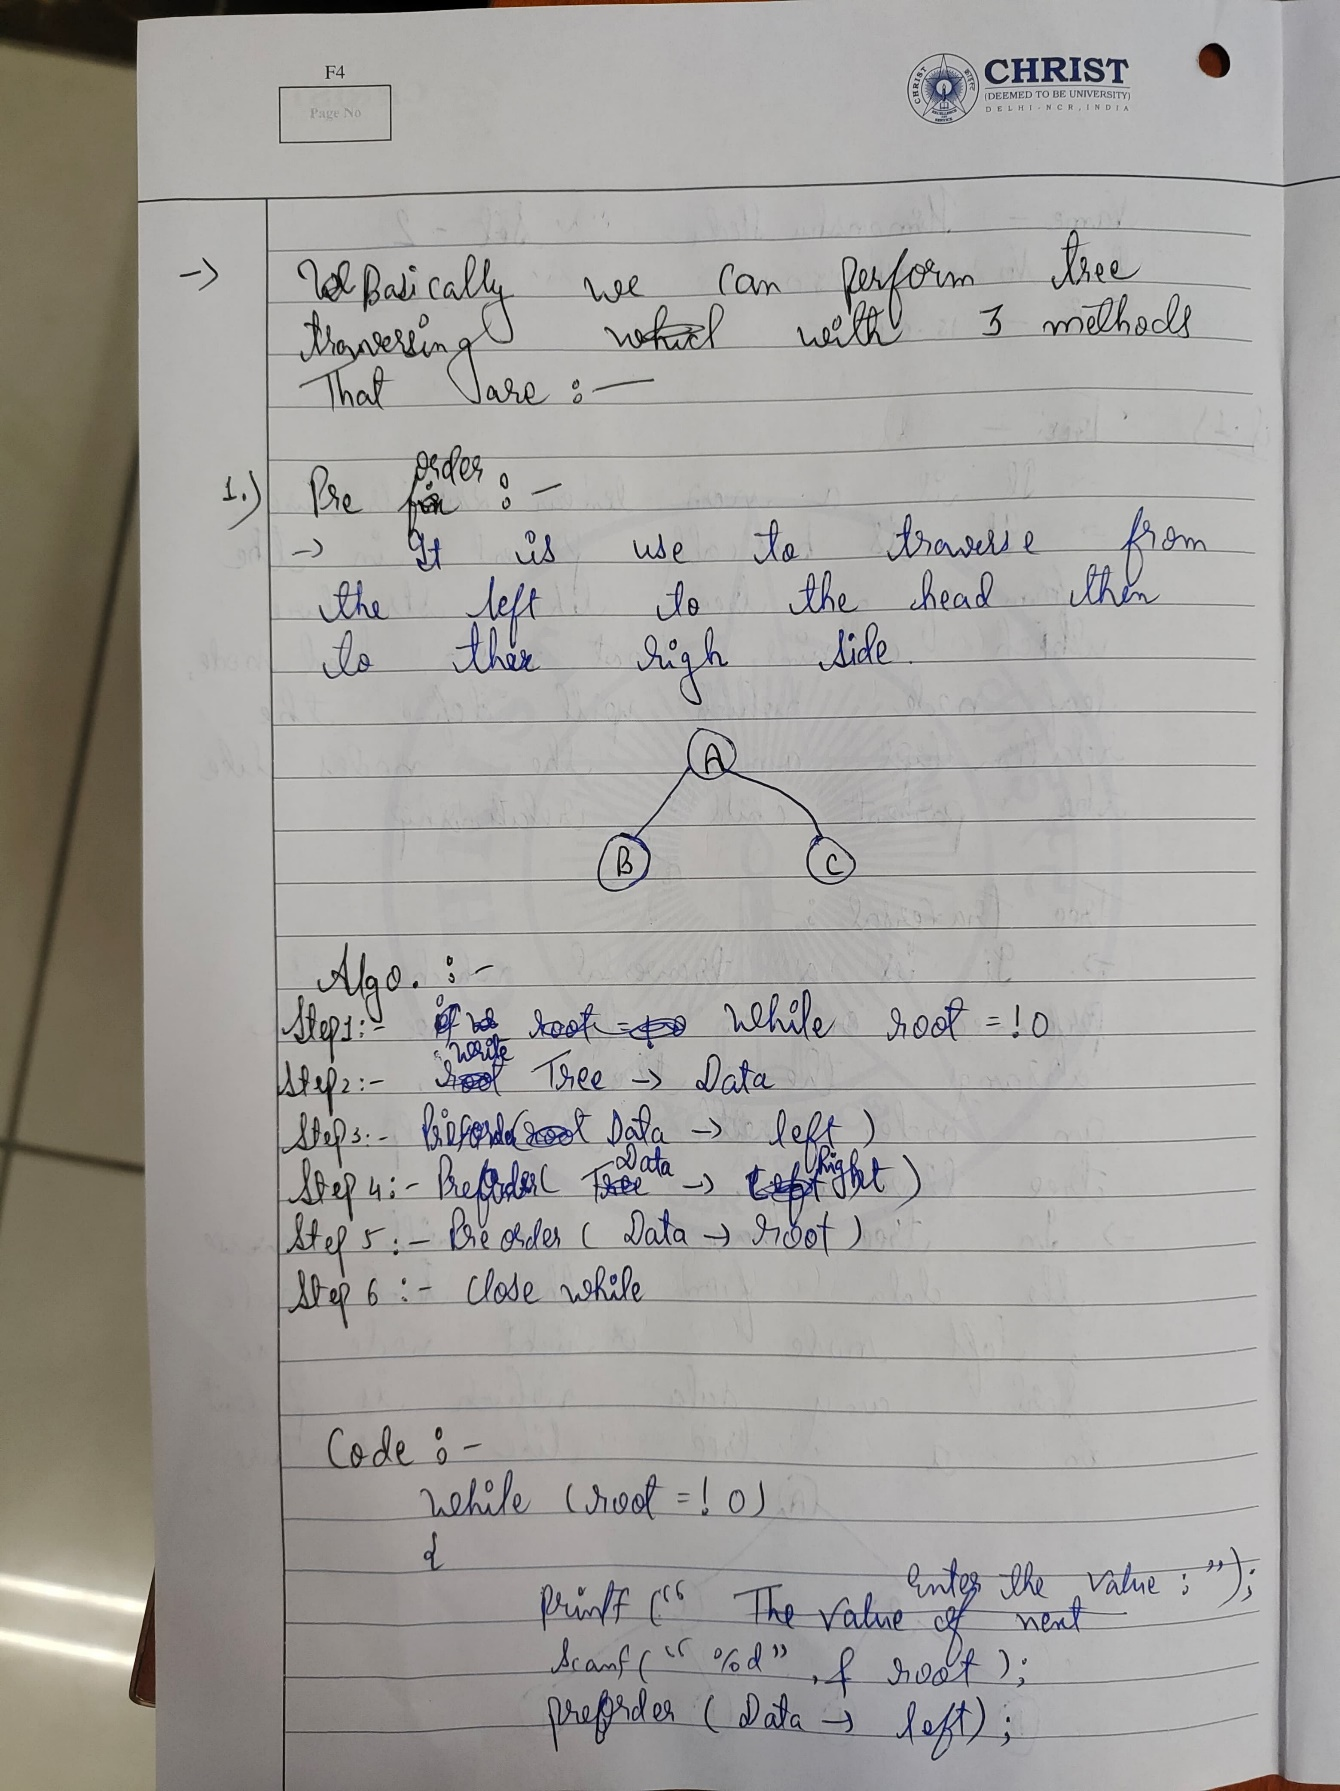 F4
Page No
CHRIST
(DEEMED TO BE UNIVERSITY)
DELHI-NCR, INDIA
-> Basically we can perform tree
traversing with 3 methods
That are :—
1.) Pre order :-
-> It is use to traverse from
the left to the head then
to ther righ side.
A
B C
Algo. :-
Step1:- While root = !0
Step2:- write Tree -> Data
Step3:- Preorder( Data -> left)
Step 4:- Preorder( Data -> Right)
Step 5:- Pre order ( Data -> root)
Step 6 :- Close while
Code :-
while (root = ! 0)
{
printf (“ Enter the value : ”);
The value of next
scanf (“ %d” , & root );
preorder ( Data -> left) ;